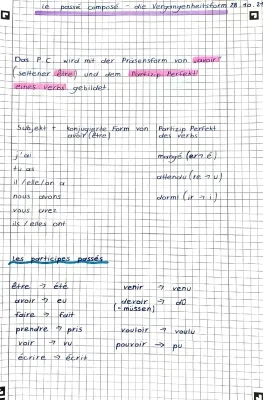 le passé composé - die Vergangenheitsform 28.10.21
Das P.C. wird mit der Präsensform von avoir
(seltener être) und dem Partizip Perfekt
eines verbs gebildet
Subjekt + konjugierte Form von Partizip Perfekt
avoir (être) des verbs
j'ai mangé (er → é)
tu as
il / elle / on a attendu (re → u)
nous avons
vous avez dormi (ir → i)
ils / elles ont
Les participes passés
être → été venir → venu
avoir → eu devoir → dû
faire → fait (= müssen)
prendre → pris vouloir → voulu
voir → vu pouvoir → pu
écrire → écrit